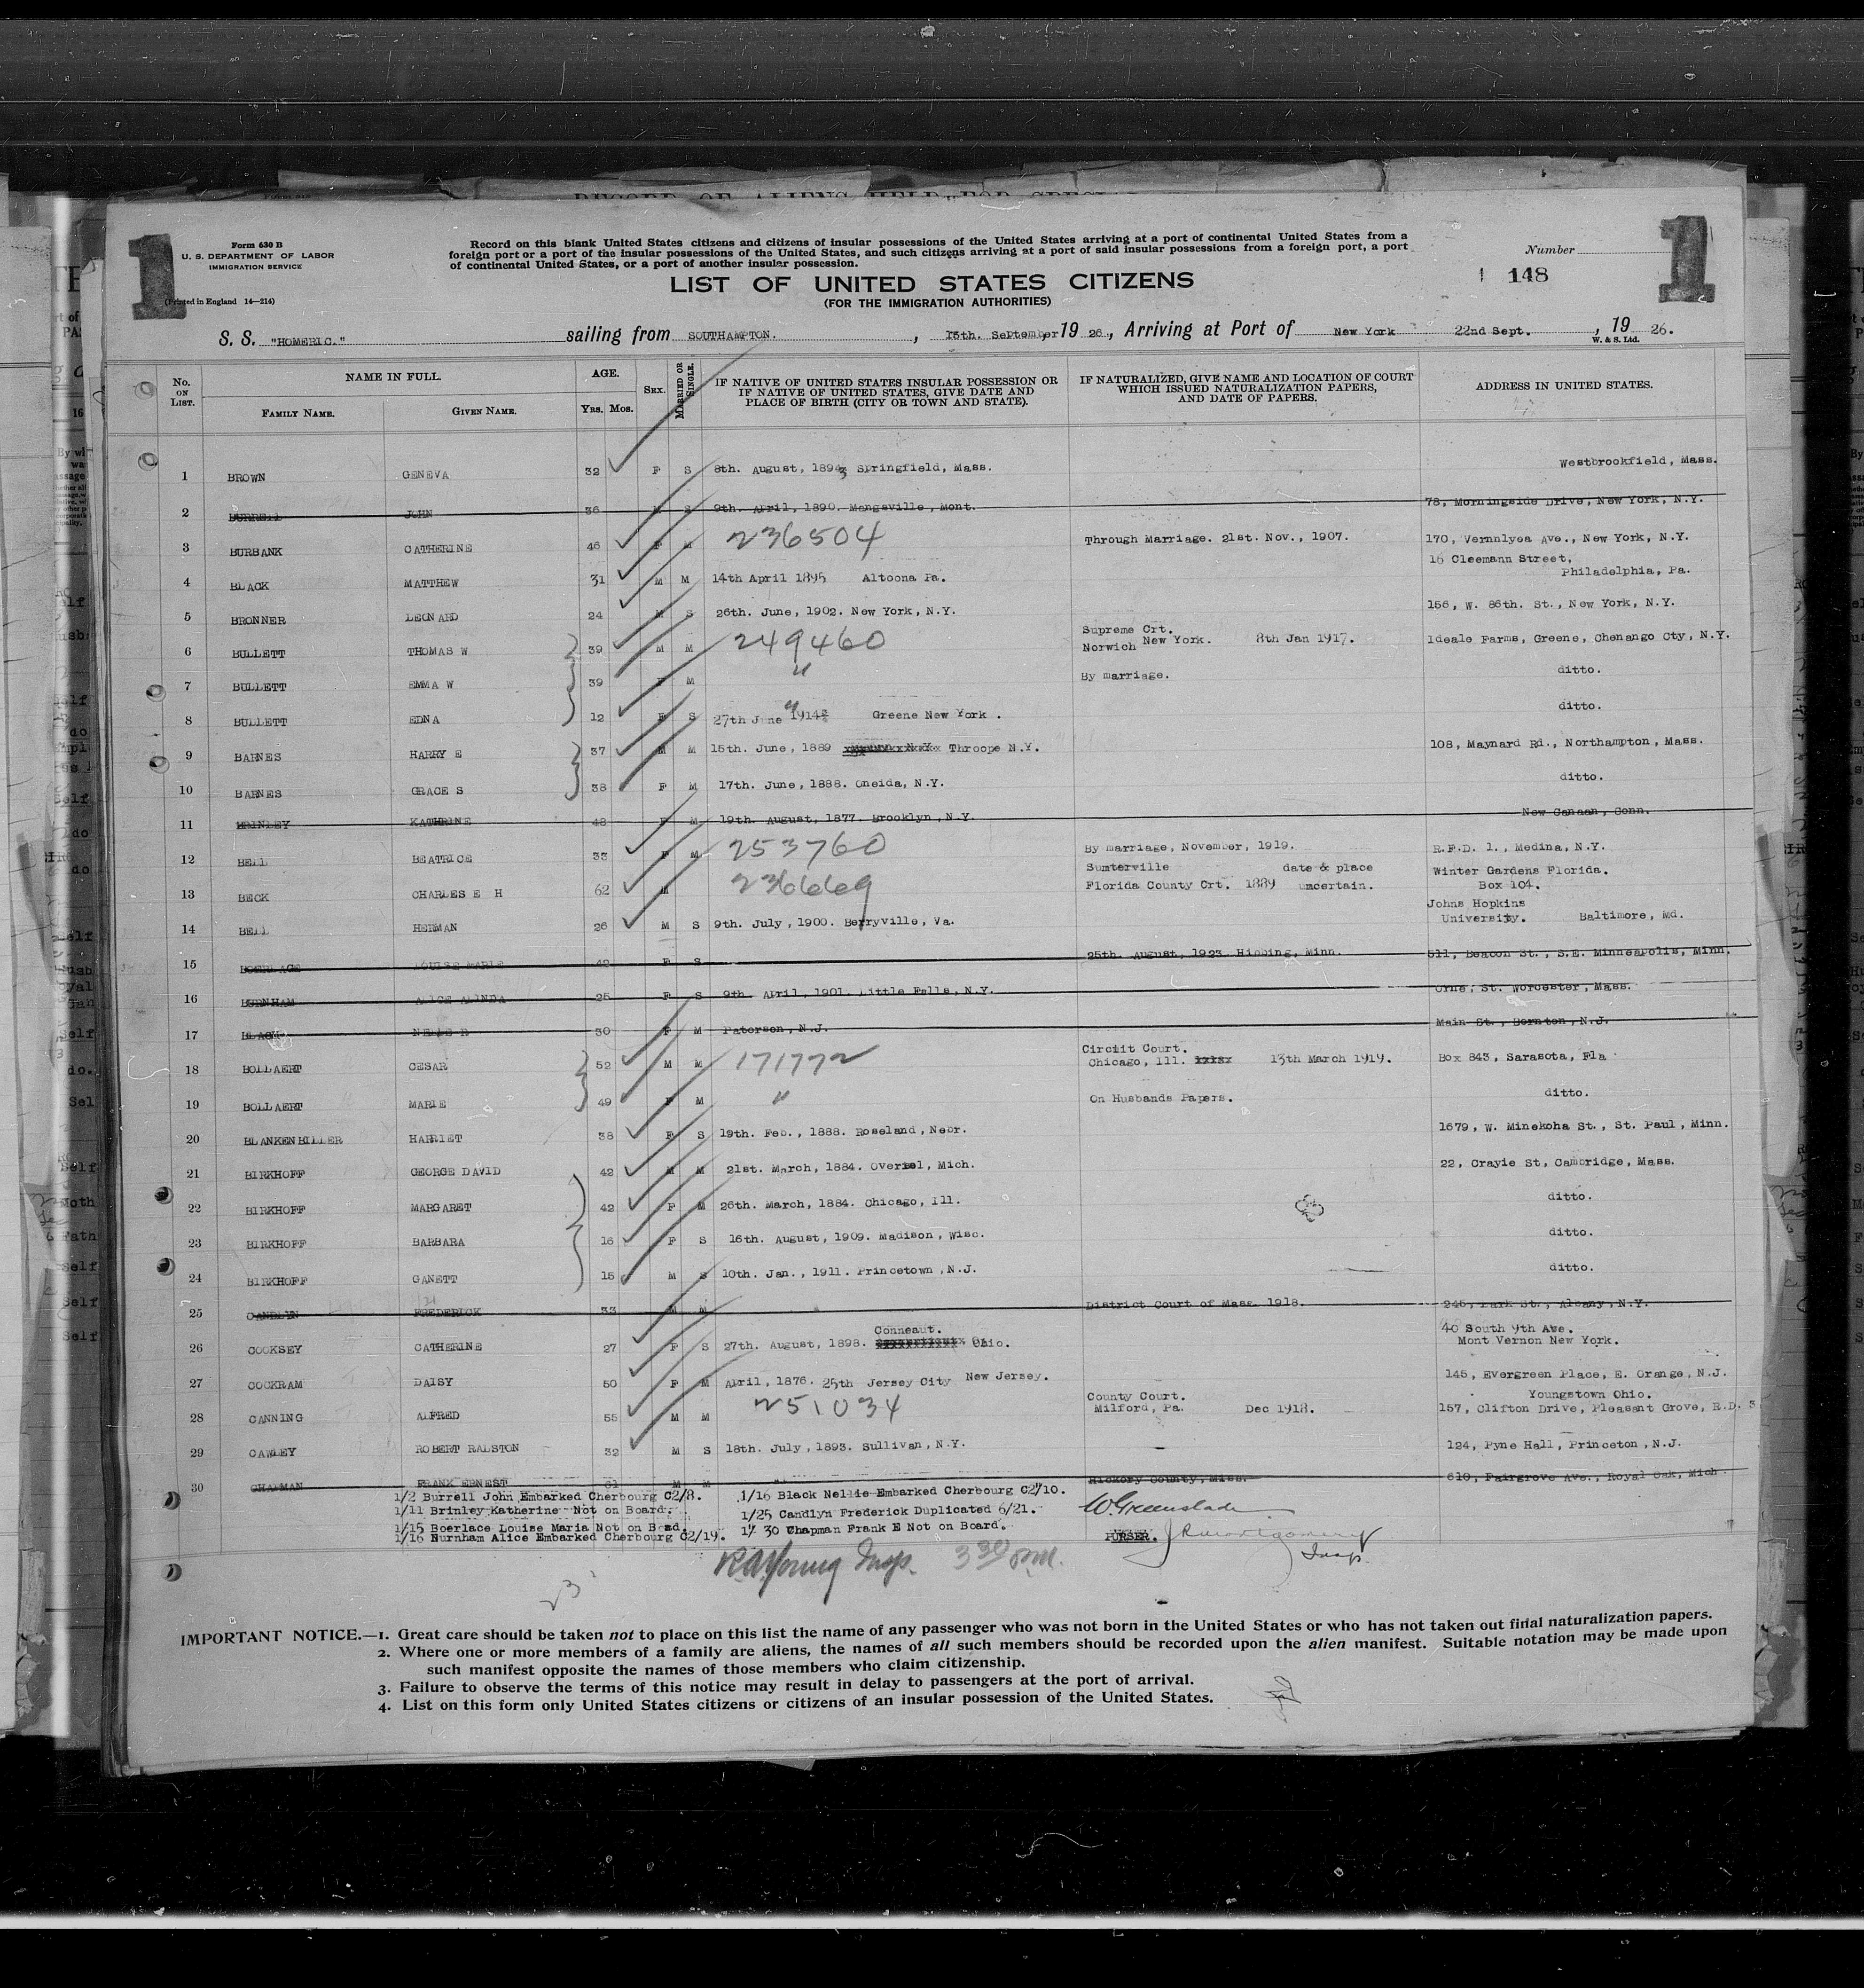 RECORD OF ALIENS HELD FOR SPECIAL
1
1
Form 630 B
U. S. DEPARTMENT OF LABOR
IMMIGRATION SERVICE
(Printed in England 14—214)
Record on this blank United States citizens and citizens of insular possessions of the United States arriving at a port of continental United States from a
foreign port or a port of the insular possessions of the United States, and such citizens arriving at a port of said insular possessions from a foreign port, a port
of continental United States, or a port of another insular possession.
Number
148
LIST OF UNITED STATES CITIZENS
(FOR THE IMMIGRATION AUTHORITIES)
S. S. "HOMERIC." sailing from SOUTHAMPTON. , 15th. September, 19 26., Arriving at Port of New York 22nd Sept. , 19 26.
W. & S. Ltd.
No. ON LIST. NAME IN FULL. FAMILY NAME. GIVEN NAME. AGE. Yrs. Mos. SEX. MARRIED OR SINGLE. IF NATIVE OF UNITED STATES INSULAR POSSESSION OR IF NATIVE OF UNITED STATES, GIVE DATE AND PLACE OF BIRTH (CITY OR TOWN AND STATE). IF NATURALIZED, GIVE NAME AND LOCATION OF COURT WHICH ISSUED NATURALIZATION PAPERS, AND DATE OF PAPERS. ADDRESS IN UNITED STATES.
1 BROWN GENEVA 32 F S 8th. August, 1893 Springfield, Mass. Westbrookfield, Mass.
2 BURRELL JOHN 36 M S 9th. April, 1890. Mangsville, Mont. 78, Morningside Drive, New York, N.Y.
3 BURBANK CATHERINE 46 F M 236504 Through Marriage. 21st. Nov., 1907. 170, Vernnlyea Ave., New York, N.Y.
4 BLACK MATTHEW 31 M M 14th April 1895 Altoona Pa. 16 Cleemann Street, Philadelphia, Pa.
5 BRONNER LEONARD 24 M S 26th. June, 1902. New York, N.Y. 156, W. 86th. St., New York, N.Y.
6 BULLETT THOMAS W 39 M M 249460 Supreme Crt. Norwich New York. 8th Jan 1917. Ideale Farms, Greene, Chenango Cty, N.Y.
7 BULLETT EMMA W 39 F M " By marriage. ditto.
8 BULLETT EDNA 12 F S 27th June 1914 Greene New York. ditto.
9 BARNES HARRY E 37 M M 15th. June, 1889 Throope N.Y. 108, Maynard Rd., Northampton, Mass.
10 BARNES GRACE S 38 F M 17th. June, 1888. Oneida, N.Y. ditto.
11 BRINLEY KATHRINE 48 F M 19th. August, 1877. Brooklyn, N.Y. New Canaan, Conn.
12 BELL BEATRICE 33 F M 253760 By marriage, November, 1919. R.F.D. 1., Medina, N.Y.
13 BECK CHARLES E H 62 M 236669 Sumterville Florida County Crt. 1889 date & place uncertain. Winter Gardens Florida. Box 104.
14 BELL HERMAN 26 M S 9th. July, 1900. Berryville, Va. Johns Hopkins University. Baltimore, Md.
15 BOERLACE LOUISE MARIE 42 F S 25th. August, 1923. Hibbing, Minn. 511, Beacon St., S.E. Minneapolis, Minn.
16 BURNHAM ALICE ALINDA 25 F S 9th. April, 1901. Little Falls, N.Y. Orne, St. Worcester, Mass.
17 BLACK NELLE R 50 F M Paterson, N.J. Main St., Bornton, N.J.
18 BOLLAERT CESAR 52 M M 171772 Circiit Court. Chicago, Ill. 13th March 1919. Box 843, Sarasota, Fla
19 BOLLAERT MARIE 49 F M " On Husbands Papers. ditto.
20 BLANKENBILLER HARRIET 38 F S 19th. Feb., 1888. Roseland, Nebr. 1679, W. Minekoha St., St. Paul, Minn.
21 BIRKHOFF GEORGE DAVID 42 M M 21st. March, 1884. Overisel, Mich. 22, Crayie St, Cambridge, Mass.
22 BIRKHOFF MARGARET 42 F M 26th. March, 1884. Chicago, Ill. ditto.
23 BIRKHOFF BARBARA 16 F S 16th. August, 1909. Madison, Wisc. ditto.
24 BIRKHOFF GANETT 15 M S 10th. Jan., 1911. Princetown, N.J. ditto.
25 CANDLYN FREDERICK 33 M M District Court of Mass. 1918. 246, Lark St., Albany, N.Y.
26 COOKSEY CATHERINE 27 F S 27th. August, 1898. Conneaut. Ohio. 40 South 9th Ave. Mont Vernon New York.
27 COCKRAM DAISY 50 F M April, 1876. 25th Jersey City New Jersey. 145, Evergreen Place, E. Orange, N.J.
28 CANNING ALFRED 55 M M 251034 County Court. Milford, Pa. Dec 1918. Youngstown Ohio. 157, Clifton Drive, Pleasant Grove, R.D. 3
29 CAWLEY ROBERT RALSTON 32 M S 18th. July, 1893. Sullivan, N.Y. 124, Pyne Hall, Princeton, N.J.
30 CHAPMAN FRANK ERNEST 61 M M Hickory County, Miss. 610, Fairgrove Ave., Royal Oak, Mich.
1/2 Burrell John Embarked Cherbourg C2/8. 1/16 Black Nellie Embarked Cherbourg C2/10.
1/11 Brinley Katherine Not on Board. 1/25 Candlyn Frederick Duplicated 6/21.
1/15 Boerlace Louise Maria Not on Board. 1/ 30 Chapman Frank E Not on Board.
1/16 Burnham Alice Embarked Cherbourg C2/19.
W. Greenslade
PURSER. J R Montgomery Insp.
R.A. Young Insp. 3 30 P.M.
23
IMPORTANT NOTICE.—1. Great care should be taken not to place on this list the name of any passenger who was not born in the United States or who has not taken out final naturalization papers.
2. Where one or more members of a family are aliens, the names of all such members should be recorded upon the alien manifest. Suitable notation may be made upon
such manifest opposite the names of those members who claim citizenship.
3. Failure to observe the terms of this notice may result in delay to passengers at the port of arrival.
4. List on this form only United States citizens or citizens of an insular possession of the United States.